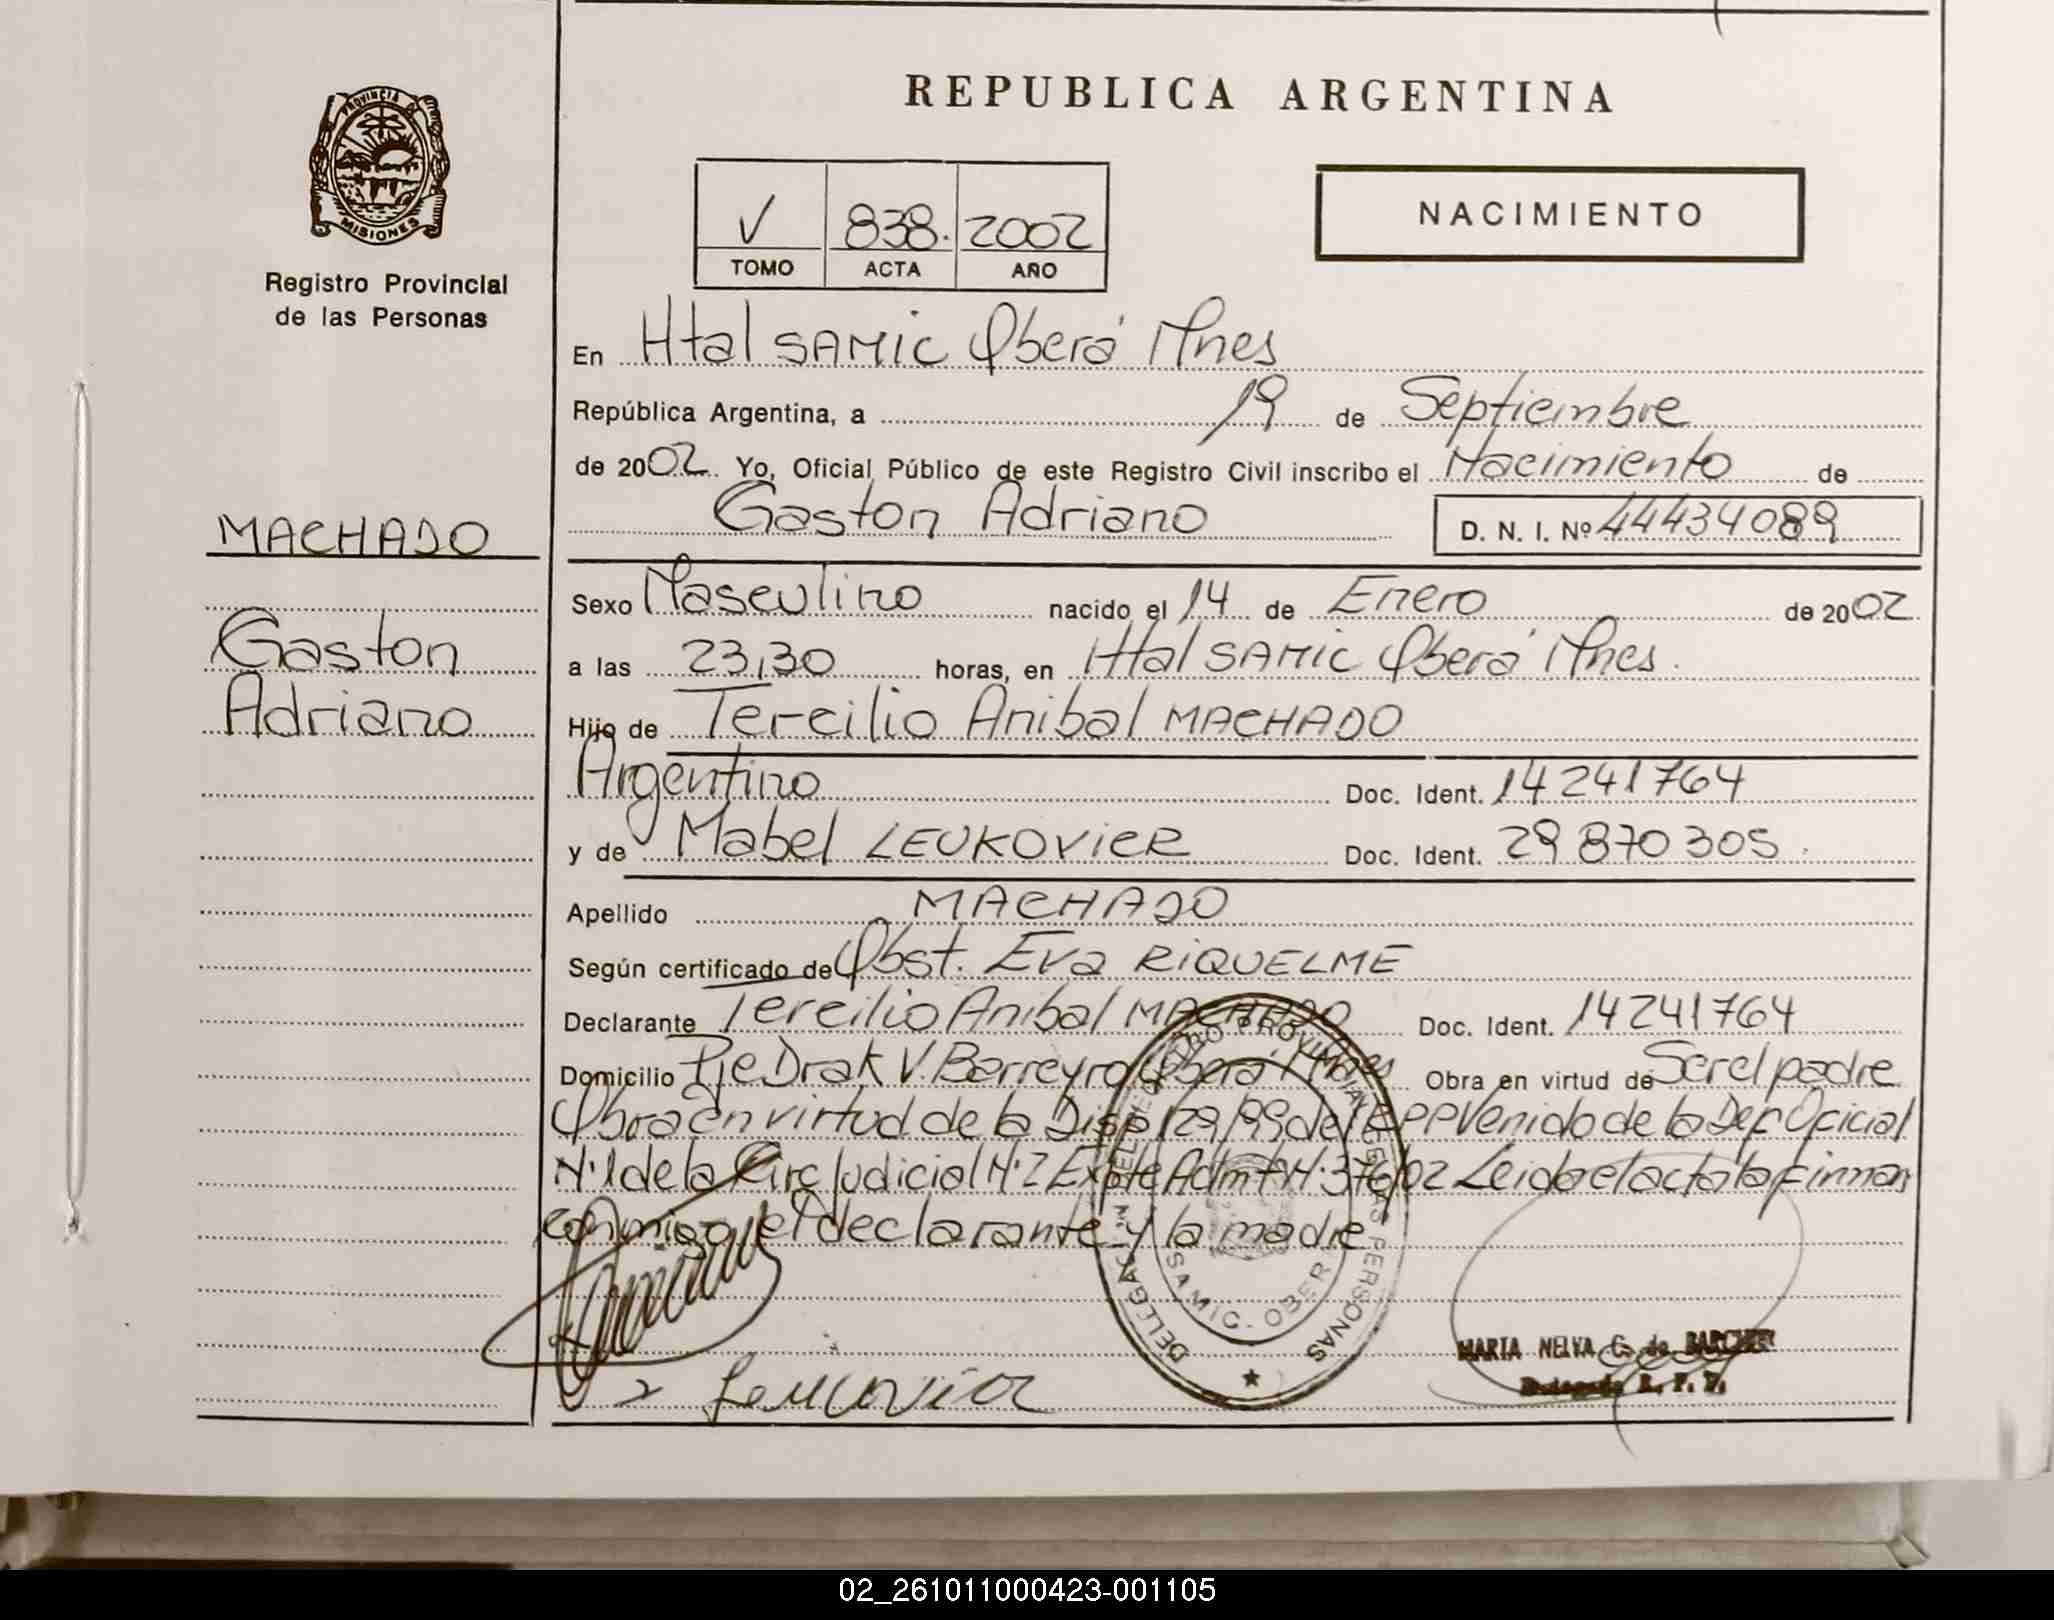 REPUBLICA ARGENTINA
PROVINCIA DE
MISIONES
Registro Provincial
de las Personas
V 838. 2002
TOMO ACTA AÑO
NACIMIENTO
En Htal SAMIC Oberá Mnes
República Argentina, a 19 de Septiembre
de 2002 Yo, Oficial Público de este Registro Civil inscribo el Nacimiento de
Gaston Adriano D. N. I. Nº 44434089
MACHADO
Gaston
Adriano
Sexo Masculino nacido el 14 de Enero de 2002
a las 23,30 horas, en Htal SAMIC Oberá Mnes.
Hijo de Tercilio Anibal MACHADO
Argentino Doc. Ident. 14241764
y de Mabel LEUKOVIER Doc. Ident. 29870305.
Apellido MACHADO
Según certificado de Obst. Eva RIQUELME
Declarante Tercilio Anibal MACHADO Doc. Ident. 14241764
Domicilio Pje Drak V. Barreyro Oberá Mnes Obra en virtud de Ser el padre
Obra en virtud de la Disp 129/99 del RPP Venido de la Def Oficial
N·1 de la Circ Judicial N·2 Expte Admt N·376/02 Leida el acta la firman
conmigo el declarante y la madre
REGISTRO PROVINCIAL DE LAS PERSONAS
SAMIC. OBERA
MARIA NELVA G. de
Delegada R. P. P.
02_261011000423-001105